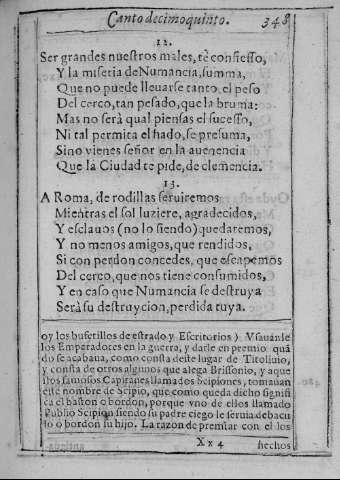 Canto decimoquinto. 348
12.
Ser grandes nuestros males, te confiesso,
Y la miseria de Numancia, summa,
Que no puede lleuarse tanto el peso
Del cerco, tan pesado, que la bruma:
Mas no serà qual piensas el sucesso,
Ni tal permita el hado, se presuma,
Sino vienes señor en la auenencia
Que la Ciudad te pide, de clemencia.
13.
A Roma, de rodillas seruiremos
Mientras el sol luziere, agradecidos,
Y esclauos (no lo siendo) quedaremos,
Y no menos amigos, que rendidos,
Si con perdon concedes, que escapemos
Del cerco, que nos tiene consumidos,
Y en caso que Numancia se destruya
Serà su destruycion, perdida tuya.
oy los bufetillos de estrado y Escritorios) Vsauanle
los Emperadores en la guerra, y darle en premio quã
do se acabaua, como consta deste lugar de Titoliuio,
y consta de otros algunos que alega Brissonio, y aque
llos famosos Capitanes llamados Scipiones, tomauan
este nombre de Scipio, que como queda dicho signifi
ca el baston o bordon, porque vno de ellos llamado
Publio Scipio siendo su padre ciego le seruia de bacu
lo o bordon su hijo. La razon de premiar con el los
Xx 4 hechos